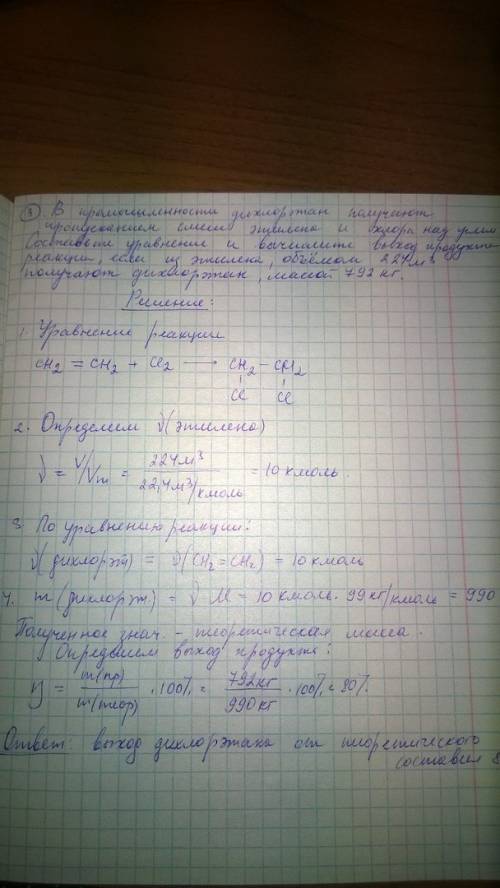 ③ В промышленности дихлорэтан получают
пропусканием смеси этилена и хлора над углем
Составьте уравнение и вычислите выход продукта
реакции, если из этилена, объёмом 224 м³
получают дихлорэтан, массой 792 кг.
Решение:
1. Уравнение реакции
CH₂ = CH₂ + Cl₂ → CH₂ – CH₂
Cl Cl
2. Определяем ν(этилена)
ν = V/Vm = 224 м³ / 22,4 м³/кмоль = 10 кмоль.
3. По уравнению реакции:
ν(дихлорэт) = ν(CH₂=CH₂) = 10 кмоль
4. m(дихлорэт.) = ν · M = 10 кмоль · 99 кг/кмоль = 990
Полученное знач. – теоретическая масса.
Определяем выход продукта:
η = m(пр) / m(теор) · 100% = 792 кг / 990 кг · 100% = 80%.
Ответ: выход дихлорэтана от теоретического
составил 8